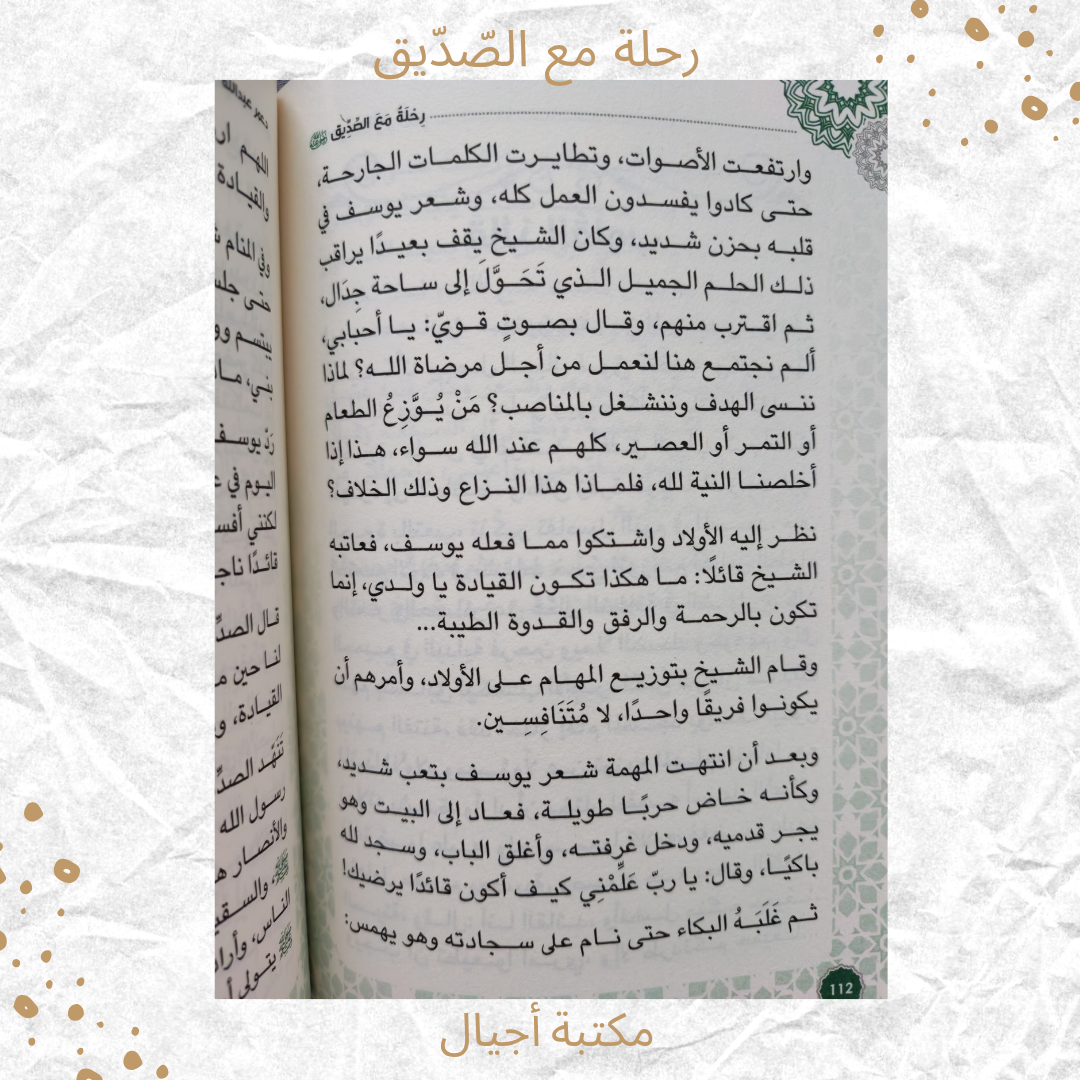 رحلة مع الصّدّيق
رِحْلَةٌ مَعَ الصِّدِّيقِ
وارتفعت الأصوات، وتطايرت الكلمات الجارحة،
حتى كادوا يفسدون العمل كله، وشعر يوسف في
قلبه بحزن شديد، وكان الشيخ يقف بعيدًا يراقب
ذلك الحلم الجميل الذي تَحَوَّلَ إلى ساحة جِدَال،
ثم اقترب منهم، وقال بصوتٍ قويّ: يا أحبابي،
ألم نجتمع هنا لنعمل من أجل مرضاة الله؟ لماذا
ننسى الهدف وننشغل بالمناصب؟ مَنْ يُوَّزِعُ الطعام
أو التمر أو العصير، كلهم عند الله سواء، هذا إذا
أخلصنا النية لله، فلماذا هذا النزاع وذلك الخلاف؟
نظر إليه الأولاد واشتكوا مما فعله يوسف، فعاتبه
الشيخ قائلًا: ما هكذا تكون القيادة يا ولدي، إنما
تكون بالرحمة والرفق والقدوة الطيبة...
وقام الشيخ بتوزيع المهام على الأولاد، وأمرهم أن
يكونوا فريقًا واحدًا، لا مُتَنَافِسِين.
وبعد أن انتهت المهمة شعر يوسف بتعب شديد،
وكأنه خاض حربًا طويلة، فعاد إلى البيت وهو
يجر قدميه، ودخل غرفته، وأغلق الباب، وسجد لله
باكيًا، وقال: يا ربّ عَلِّمْنِي كيف أكون قائدًا يرضيك!
ثم غَلَبَهُ البكاء حتى نام على سجادته وهو يهمس:
112
اللهم
والقيادة
وفي المنام
بني،
رَدَّ يوسف
اليوم في
لكنني
قائدًا
قال
لنا حين
القيادة،
تَنَهَّد
رسول الله
والأنصار
الناس،
مكتبة أجيال